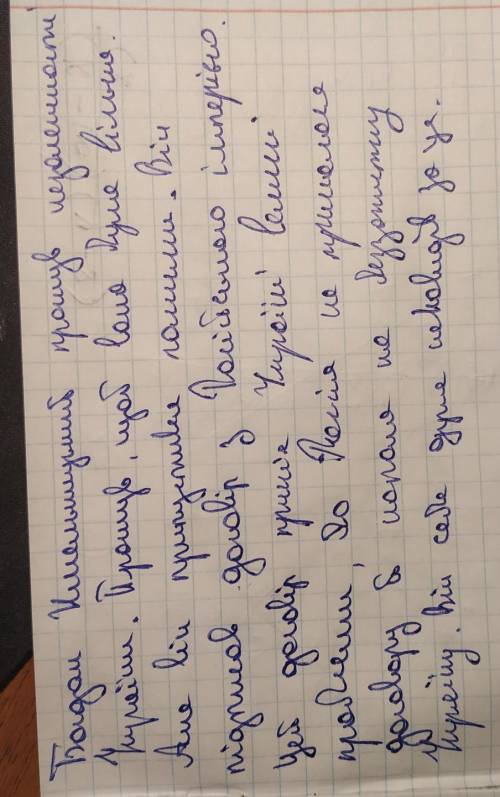 Богдан Хмельницький прагнув незалежності
України. Прагнув, щоб вона була вільна.
Але він припустився помилки. Він
підписав договір з Російською імперією.
Цей договір приніс Україні великі
проблеми, бо Росія не трималася
договору й напала на беззахисну
Україну. Він себе дуже ненавидів за це.